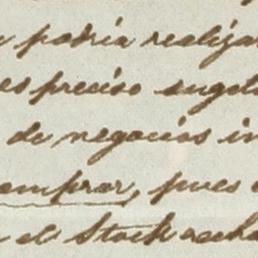 podria realizar
es preciso
de negocios in
comprar, pues
el Stock